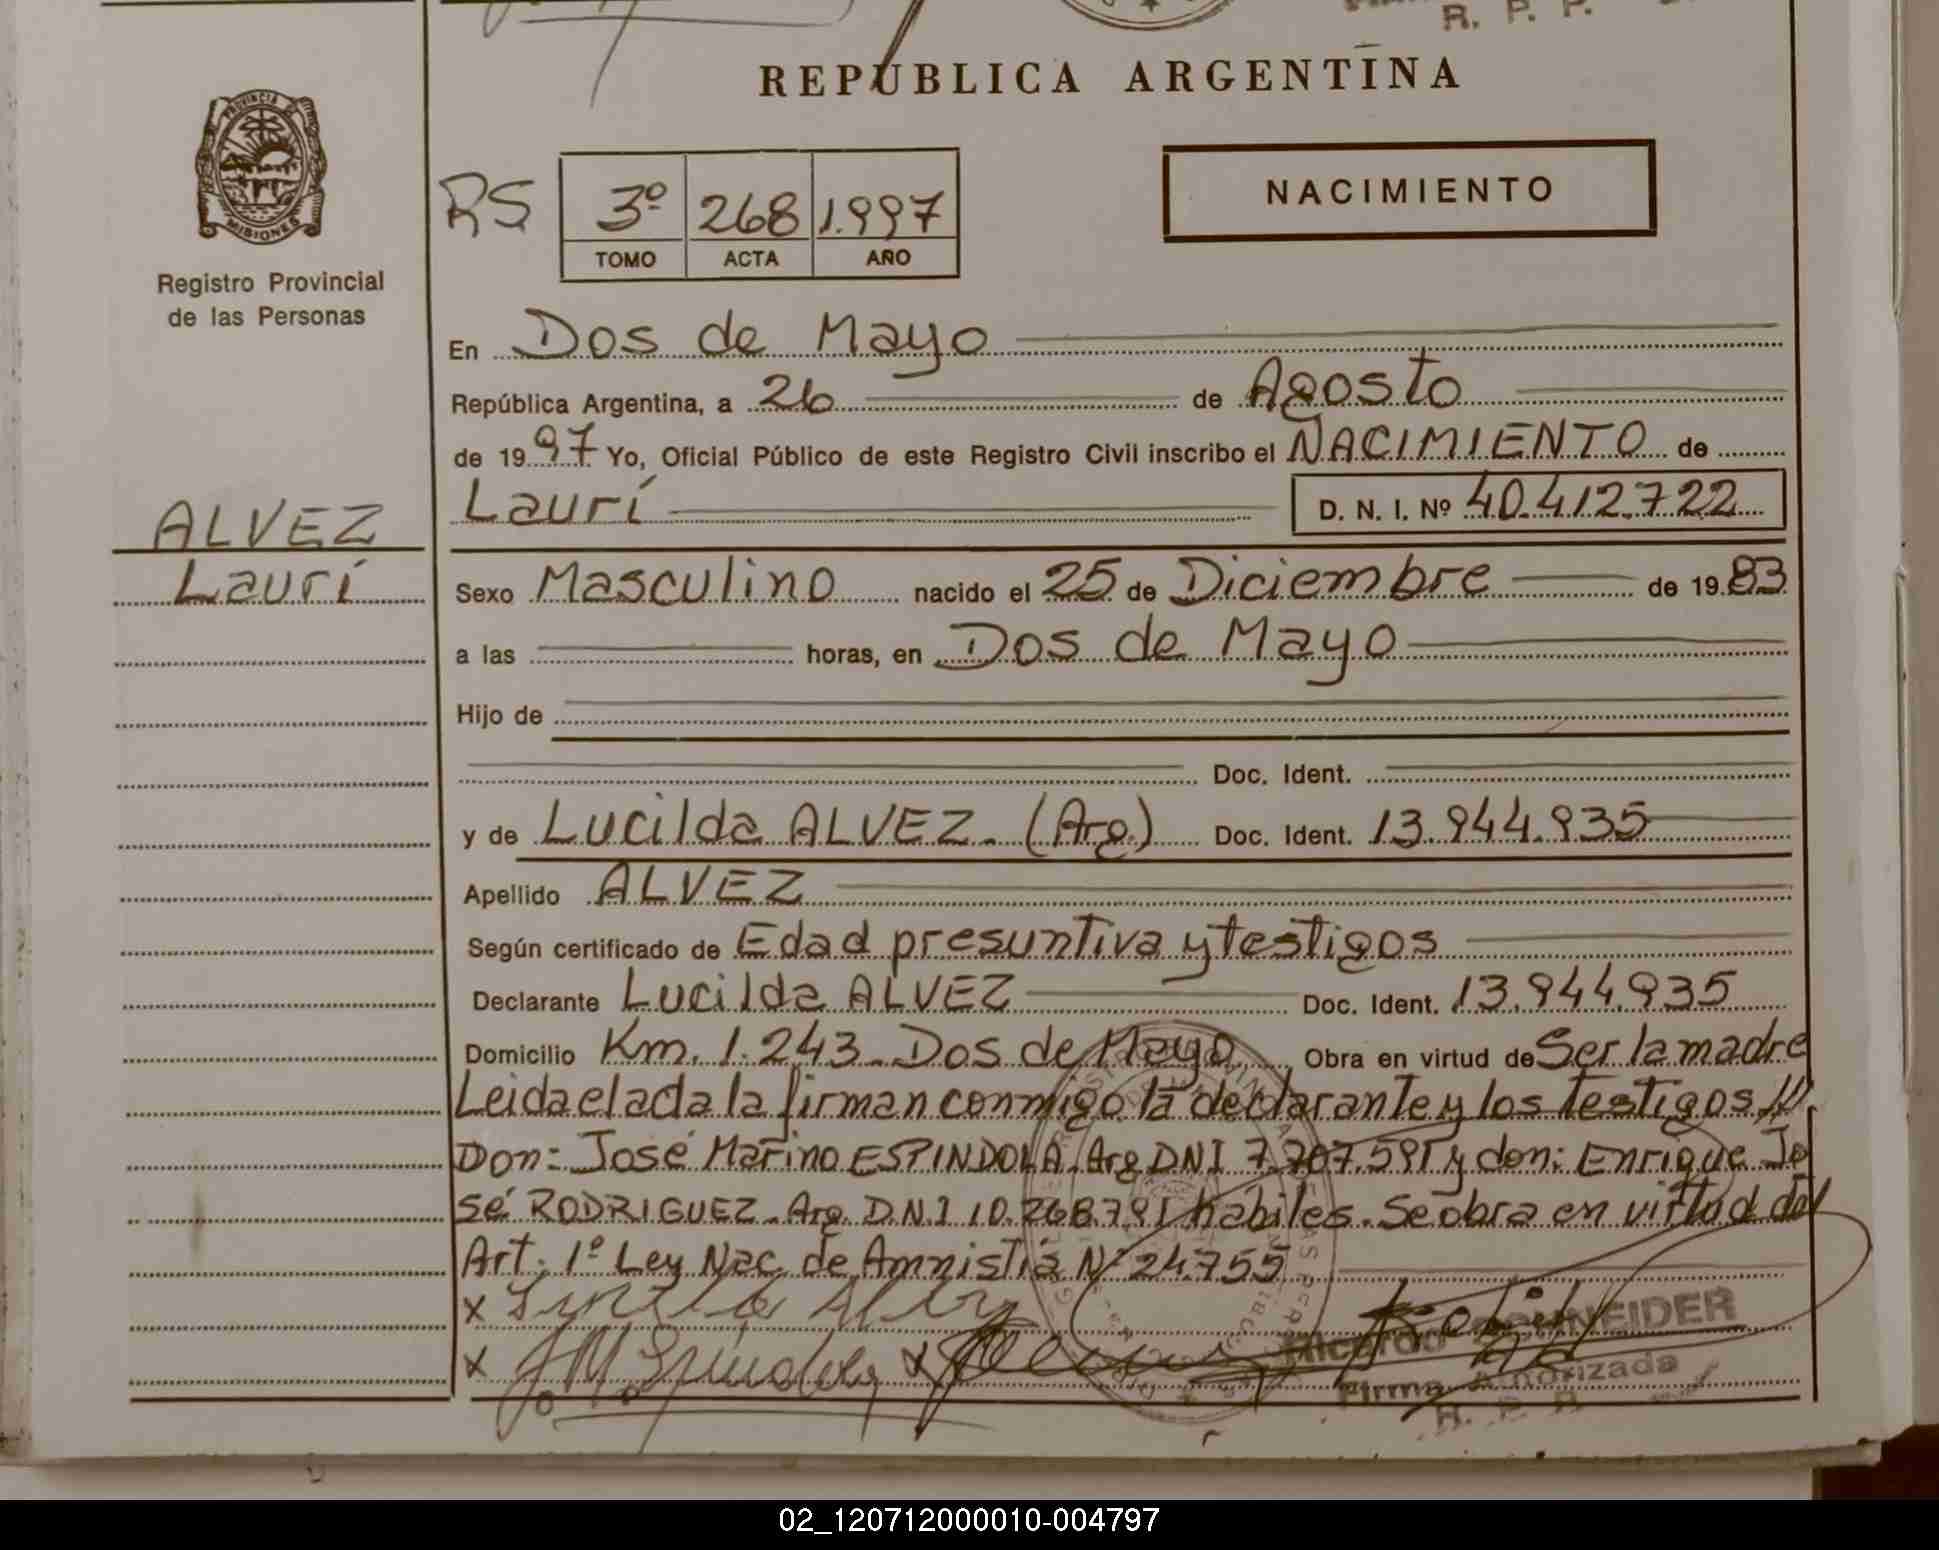 R. P. P.
REPUBLICA ARGENTINA
PROVINCIA
MISIONES
Registro Provincial
de las Personas
RS 3º 268 1.997
TOMO ACTA AÑO
NACIMIENTO
En Dos de Mayo
República Argentina, a 26 de Agosto
de 1997 Yo, Oficial Público de este Registro Civil inscribo el NACIMIENTO de
ALVEZ
Laurí
Laurí D. N. I. Nº 40.412.722
Sexo Masculino nacido el 25 de Diciembre de 1983
a las horas, en Dos de Mayo
Hijo de
Doc. Ident.
y de Lucilda ALVEZ. (Arg.) Doc. Ident. 13.944.935
Apellido ALVEZ
Según certificado de Edad presuntiva y testigos
Declarante Lucilda ALVEZ Doc. Ident. 13.944.935
Domicilio Km. 1.243. Dos de Mayo Obra en virtud de Ser la madre
Leida el acta la firman conmigo la declarante y los testigos
Don: José Marino ESPINDOLA. Arg DNI 7.707.591 y don: Enrique Jo
sé RODRIGUEZ. Arg. D.N.I 10.268.791 habiles. Se obra en virtud del
Art. 1º Ley Nac. de Amnistia Nº 24.755
x
x x
Ricardo SCHNEIDER
Firma Autorizada
R. P. P.
02_120712000010-004797